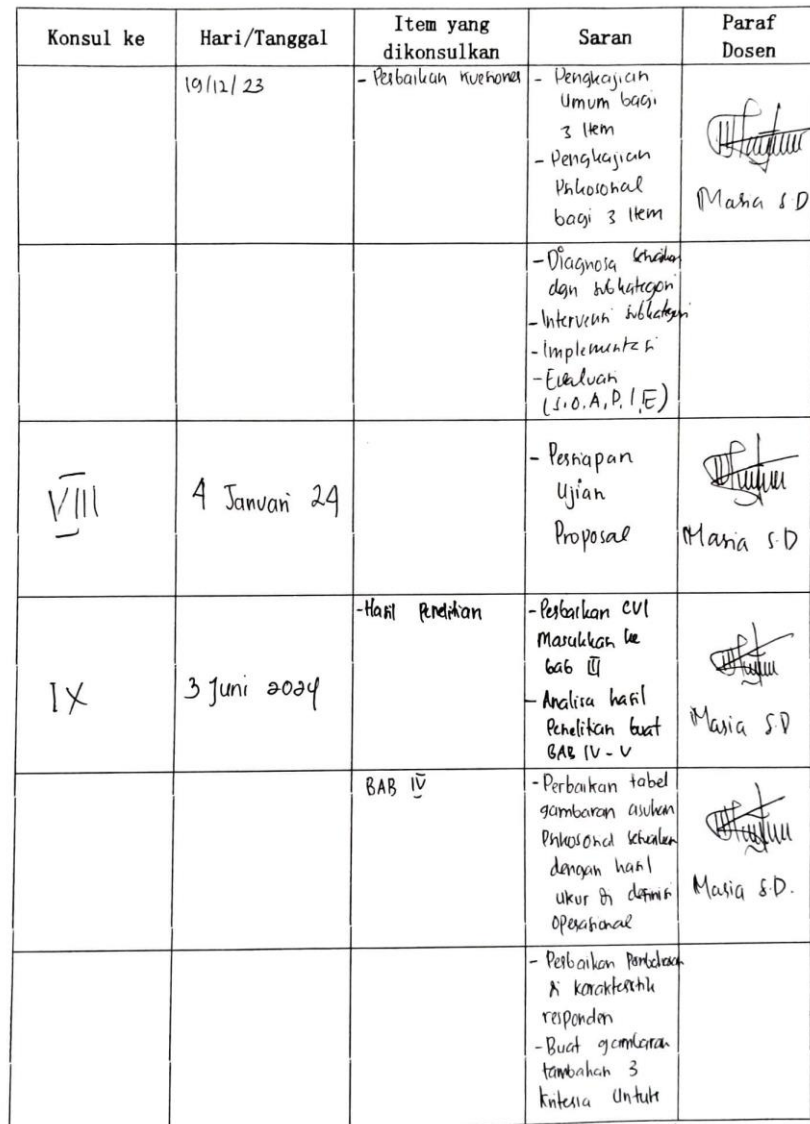 Konsul ke Hari/Tanggal Item yang dikonsulkan Saran Paraf Dosen
19/12/23
- Perbaikan kuesioner
- Pengkajian
Umum bagi
3 Item
- Pengkajian
Psikososial
bagi 3 Item
Maria S.D
- Diagnosa
dan subkategori
- Intervensi subkategori
- Implementasi
- Evaluasi
(S.O.A.P.I.E)
VIII
4 Januari 24
- Persiapan
Ujian
Proposal
Maria S.D
IX
3 Juni 2024
- Hasil Penelitian
- Perbaikan CVI
Masukkan ke
bab III
- Analisa hasil
Penelitian buat
BAB IV - V
Maria S.D
BAB IV
- Perbaikan tabel
gambaran asuhan
Psikososial
dengan hasil
ukur di definisi
Operasional
Maria S.D.
- Perbaikan Pembahasan
di karakteristik
responden
- Buat gambaran
tambahan 3
Kriteria Untuk